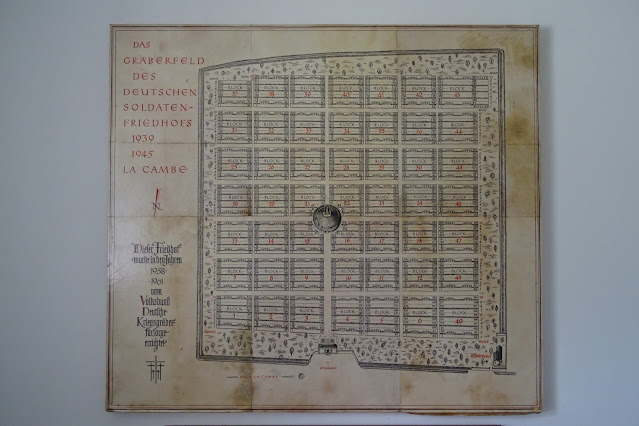 DAS
GRÄBERFELD
DES
DEUTSCHEN
SOLDATEN-
FRIEDHOFS
1939
1945
LA CAMBE
N
Dieser Friedhof
wurde in den Jahren
1958
-1961
vom
Volksbund
Deutsche
Kriegsgräber
fürsorge
errichtet
BLOCK BLOCK BLOCK BLOCK BLOCK BLOCK BLOCK
37 38 39 40 41 42 43
BLOCK BLOCK BLOCK BLOCK BLOCK BLOCK BLOCK
31 32 33 34 35 36 44
BLOCK BLOCK BLOCK BLOCK BLOCK BLOCK BLOCK
25 26 27 28 29 30 45
BLOCK BLOCK BLOCK BLOCK BLOCK BLOCK BLOCK
19 20 21 22 23 24 46
BLOCK BLOCK BLOCK BLOCK BLOCK BLOCK BLOCK
13 14 15 16 17 18 47
BLOCK BLOCK BLOCK BLOCK BLOCK BLOCK BLOCK
7 8 9 10 11 12 48
BLOCK BLOCK BLOCK BLOCK BLOCK BLOCK BLOCK
2 3 4 5 6 49
LA CAMBE